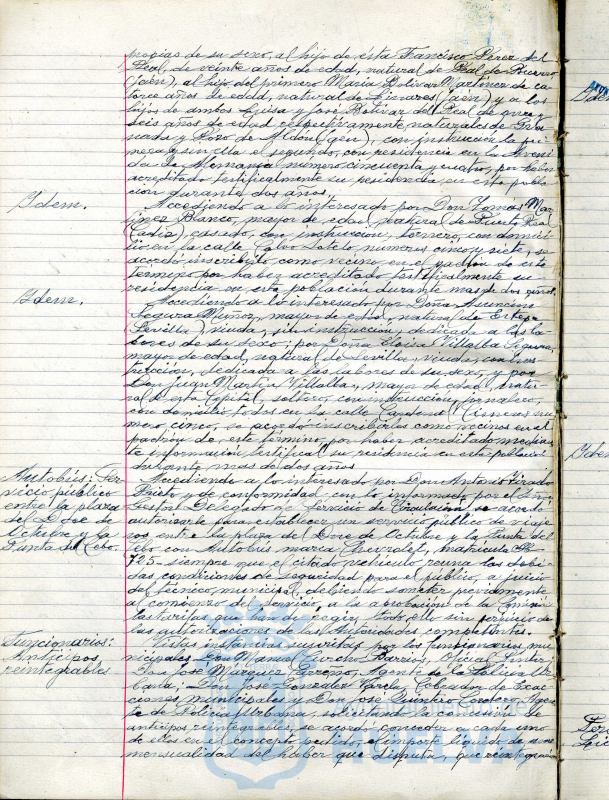 propias de su sexo, al hijo de ésta Francisco Pérez del
Real, de veinte años de edad, natural de Real de Becerro
(Jaén), al hijo del primero María Bolívar Martínez de ca-
torce años de edad, natural de Linares (Jaén) y a los
hijos de ambos Luisa y José Bolívar del Real de once y
seis años de edad respectivamente, naturales de
y Pozo de Alcón (Jaén), con instrucción la pri-
mera y sin ella el segundo, con residencia en la Aveni-
da de Alemania número cincuenta y cuatro, por haber
acreditado testificalmente su residencia en esta pobla-
ción durante dos años.
Idem.
Accediendo a lo interesado por Don Tomás Mar-
tínez Blanco, mayor de edad, natural de Puerto Real
(Cádiz), casado, con instrucción, tornero, con domici-
lio en la calle Calvo Sotelo números cinco y siete, se
acordó inscribirlo como vecino en el padrón de este
término por haber acreditado testificalmente su
residencia en esta población durante mas de dos años.
Idem.
Accediendo a lo interesado por Doña Asunción
Segura Muñoz, mayor de edad, natural de
(Sevilla), viuda, sin instrucción, dedicada a las la-
bores de su sexo; por Doña Villalba Segura,
mayor de edad, natural de Sevilla, viuda, con ins-
trucción, dedicada a las labores de su sexo, y por
Don Juan Martín Villalba, mayor de edad, natu-
ral de esta Capital, soltero, con instrucción, jornalero,
con domicilio todos en la calle Cardenal Cisneros nú-
mero cinco, se acordó inscribirlos como vecinos en el
padrón de este término, por haber acreditado median-
te información testifical su residencia en esta población
durante mas de dos años
Autobús: Ser-
vicio público
entre la plaza
del Doce de
Octubre y la
Punta del Sebo.
Accediendo a lo interesado por Don Antonio Tirado
Prieto y de conformidad con lo informado por el Sr.
Gestor Delegado de Servicio de Circulación se acordó
autorizarle para establecer un servicio público de viaje-
ros entre la plaza del Doce de Octubre y la Punta del
Sebo con Autobús marca Chevrolet, matrícula
725- siempre que el citado vehículo reuna las debi-
das condiciones de seguridad para el público, a juicio
del técnico municipal, debiendo someter previamente
al comienzo del servicio, a la aprobación de la Comisión
las tarifas que han de regir, todo ello sin perjuicio de
las autorizaciones de las Autoridades competentes.
Funcionarios:
Anticipos
reintegrables
Vistas instancias suscritas por los funcionarios mu-
nicipales Don Manuel Barrios, Oficial
Don José Márquez Carreño, Agente de la Policía Ur-
bana; Don José González García, Cobrador de Exac-
ciones municipales y Don José Quintero Orozco, Agen-
te de Policía Urbana, solicitando la concesión de
anticipos reintegrables, se acordó conceder a cada uno
de ellos en el concepto pedido, el importe líquido de una
mensualidad del haber que disfruta, que reintegrará